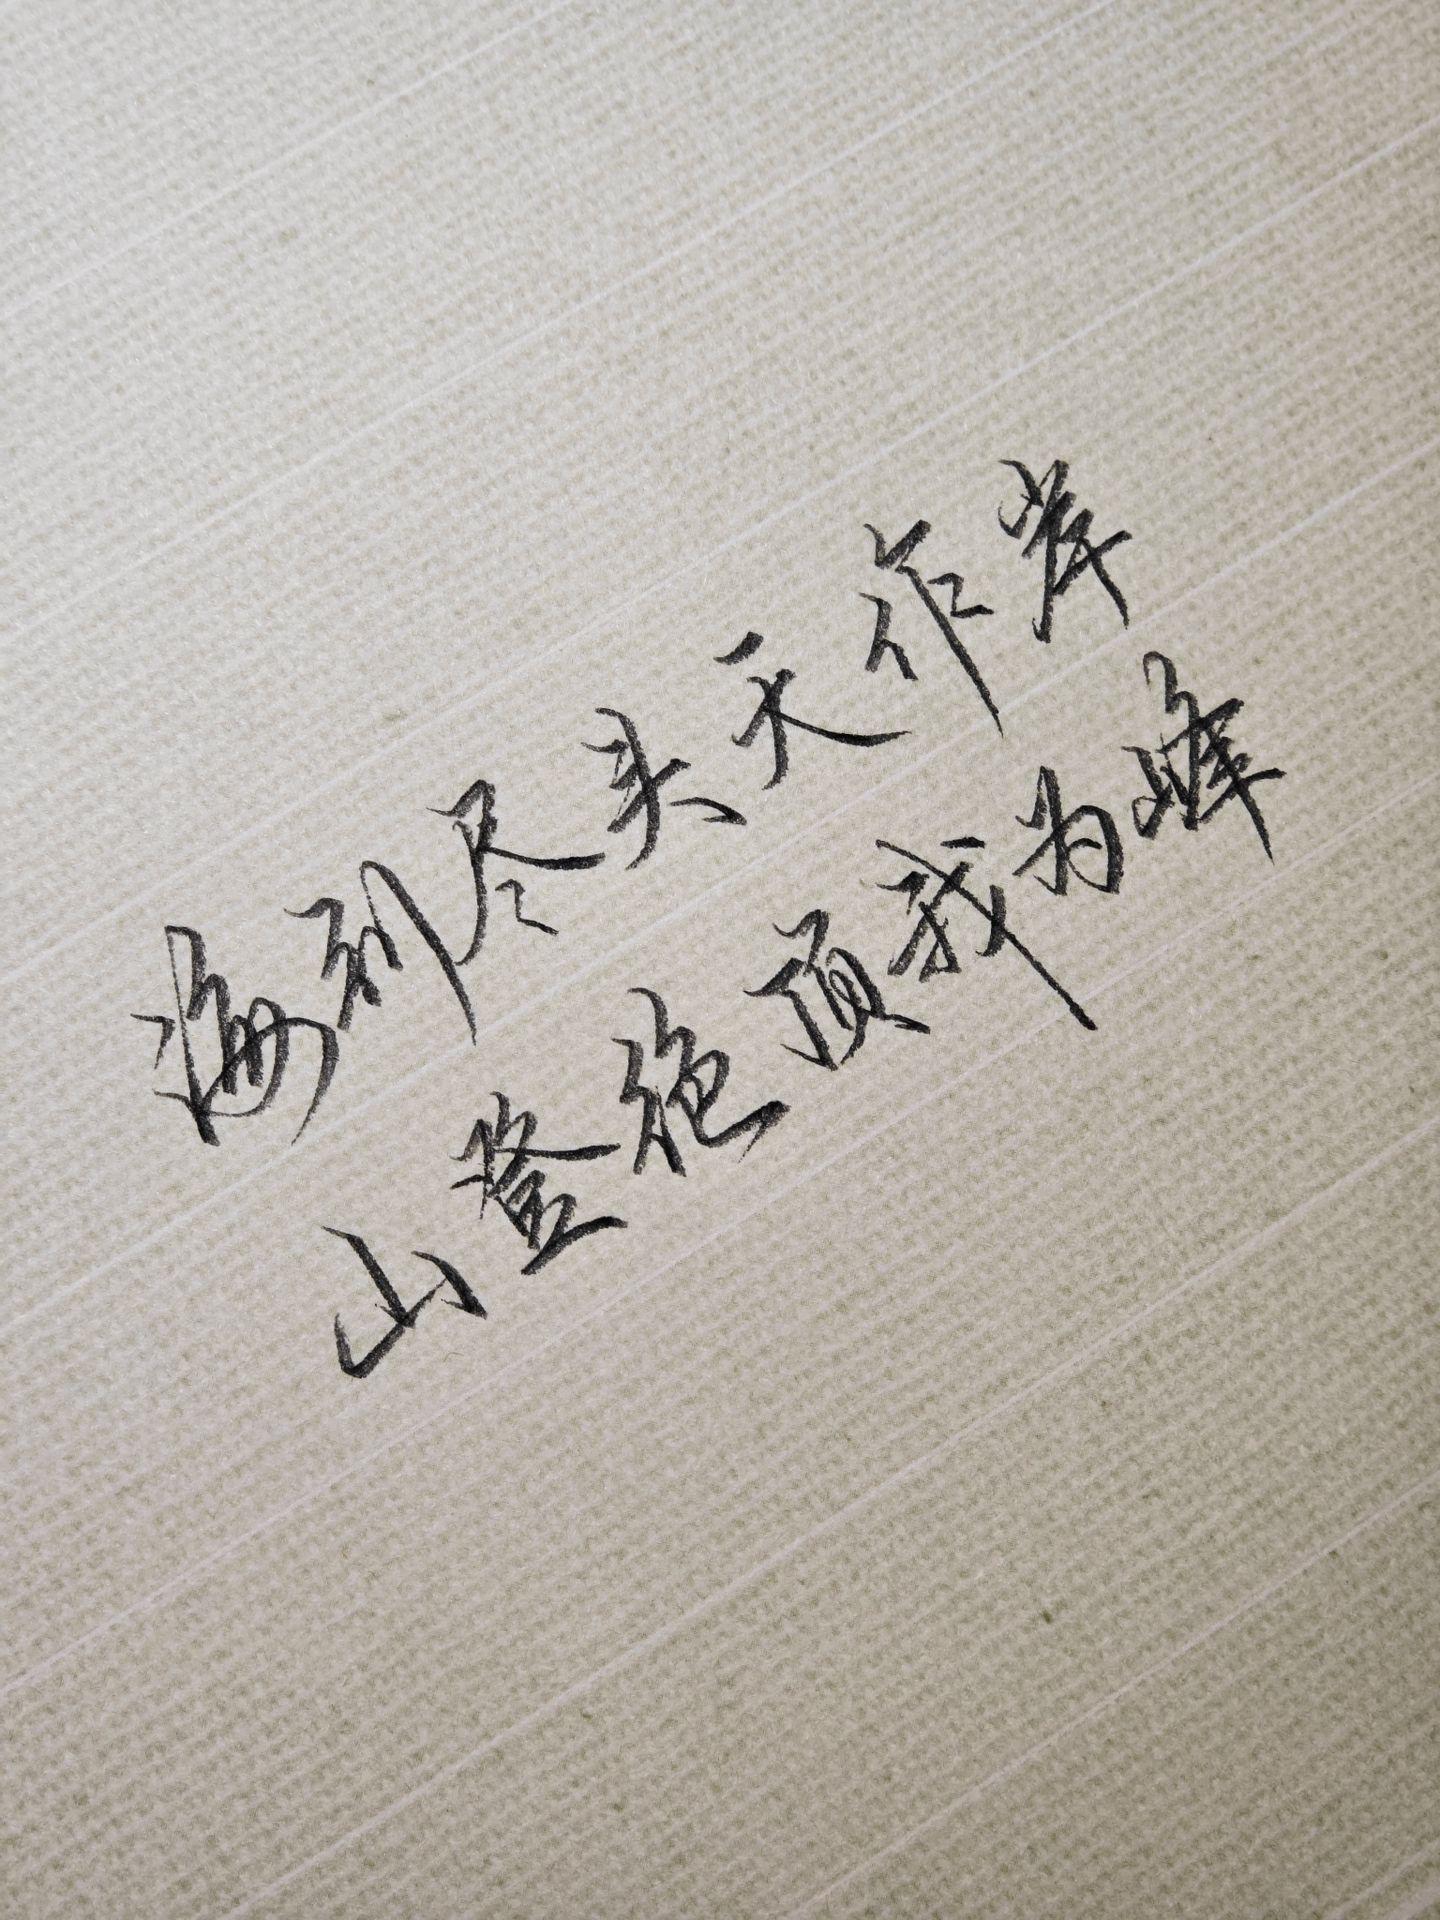 海到尽头天作岸
山登绝顶我为峰